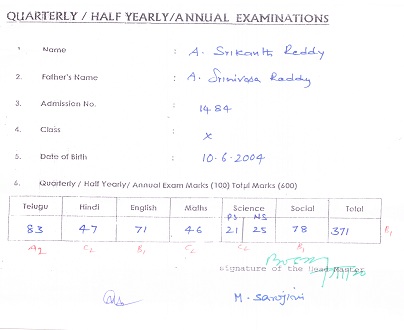 QUARTERLY / HALF YEARLY/ANNUAL EXAMINATIONS
1. Name : A. Srikanth Reddy
2. Father's Name : A. Srinivasa Raddy
3. Admission No. : 1484
4. Class : X
5. Date of Birth : 10-6-2004
6. Quarterly / Half Yearly/ Annual Exam Marks (100) Total Marks (600)
Telugu Hindi English Maths Science Social Total
PS NS
83 47 71 46 21 25 78 371 B1
A2 C2 B1 C2 C2 B1
Signature of the Head Master
M. Sarojini